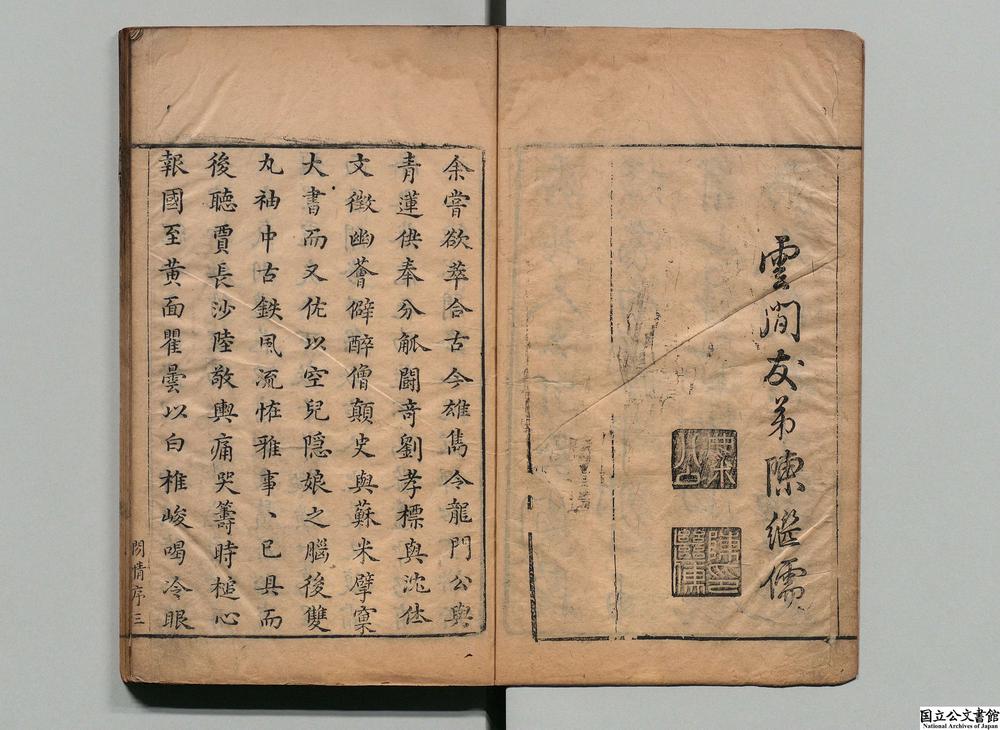 雲間友弟陳繼儒
余嘗欲萃合古今雄雋令龍門公與
青蓮供奉分觚闘竒劉孝標與沈休
文徴幽薈僻醉僧顛史與蘇米擘窠
大書而又佐以空兒隠娘之腦後雙
丸袖中古鉄風流恠雅事〻已具而
後聴賈長沙陸敬輿痛哭籌時槌心
報國至黄面瞿曇以白椎峻喝冷眼
閒情序 三
国立公文書館
National Archives of Japan